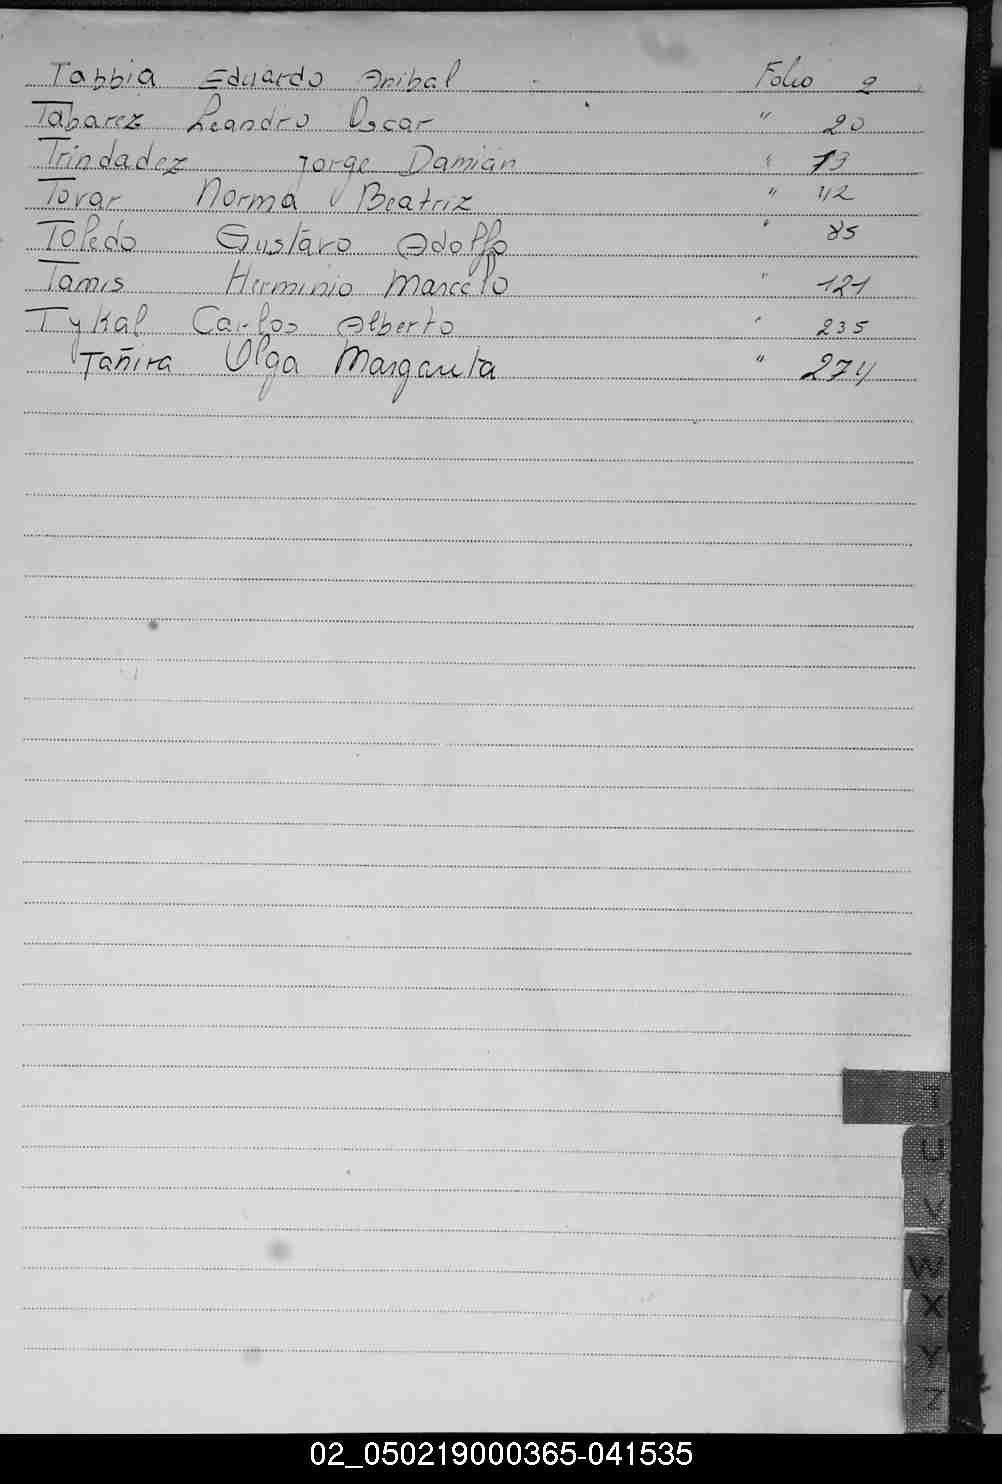 Tabbia Eduardo Anibal Folio 2
Tabarez Leandro Oscar " 20
Trindadez Jorge Damián " 
Tovar Norma Beatriz " 42
Toledo Gustavo Adolfo " 85
Tamis Herminio Marcelo " 121
Tykal Carlos Alberto " 235
Tañira Olga Margarita " 274
T
U
V
W
X
Y
Z
02_050219000365-041535